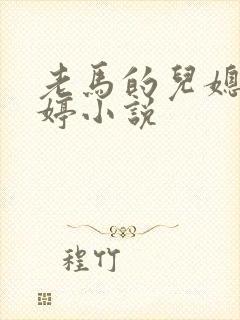 老馬的兒媳
婷小説
程竹